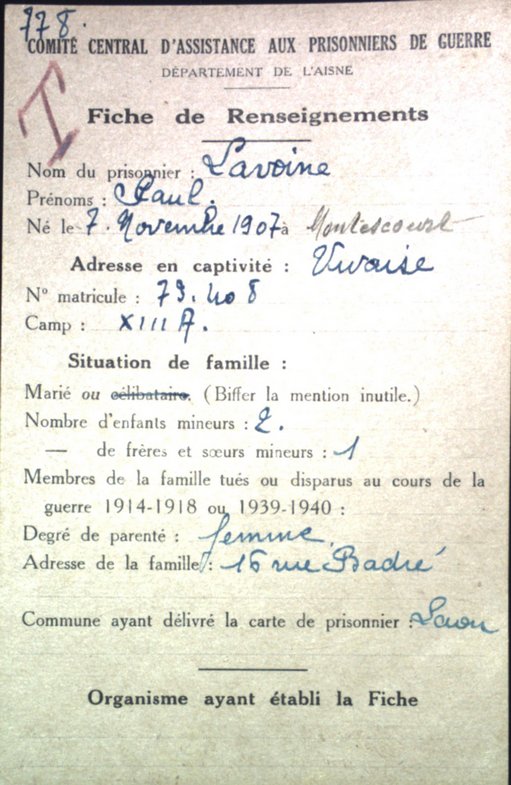 778.
COMITÉ CENTRAL D'ASSISTANCE AUX PRISONNIERS DE GUERRE
DÉPARTEMENT DE L'AISNE
I
Fiche de Renseignements
Nom du prisonnier : Lavoine
Prénoms : Paul.
Né le 7. Novembre 1907 à Montescourt
Adresse en captivité : Vivaise
N° matricule : 79.408
Camp : XIII A.
Situation de famille :
Marié ou célibataire. (Biffer la mention inutile.)
Nombre d'enfants mineurs : 2.
— de frères et sœurs mineurs : 1
Membres de la famille tués ou disparus au cours de la
guerre 1914-1918 ou 1939-1940 :
Degré de parenté : femme.
Adresse de la famille : 16 rue Badré
Commune ayant délivré la carte de prisonnier : Laon
Organisme ayant établi la Fiche